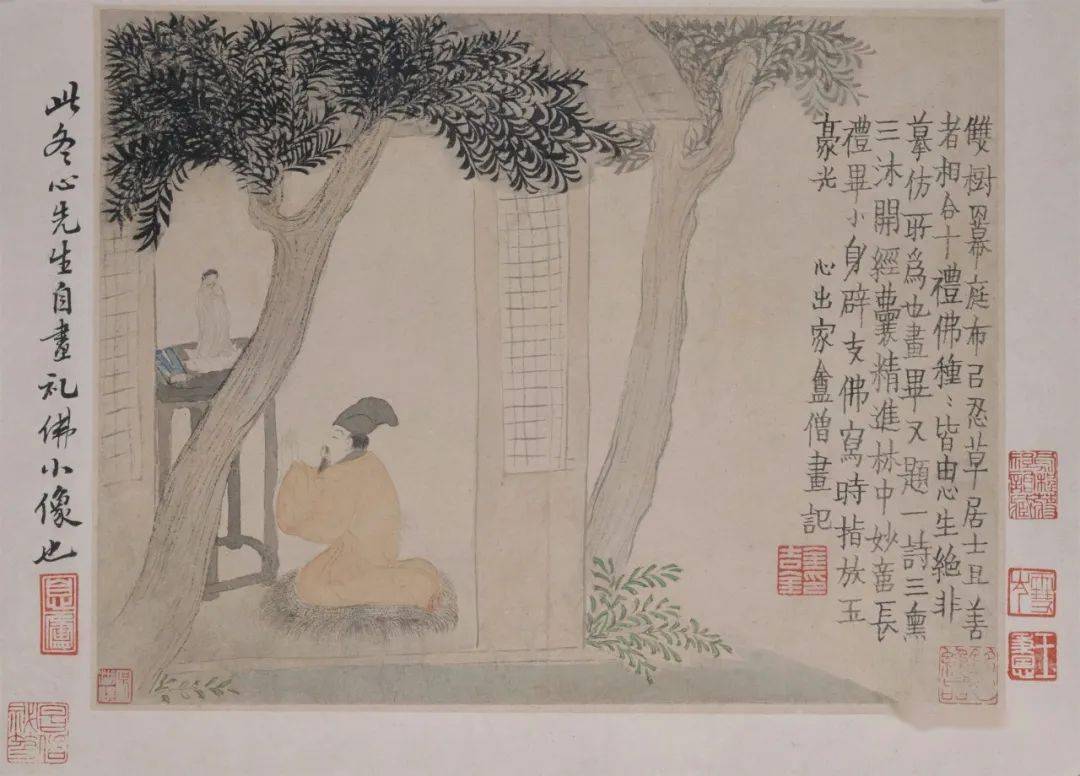 雙樹冪庭布已忍草居士且善
者相合十禮佛種〻皆由心生絶非
摹仿所為也畫畢又題一詩三熏
三沐開經囊精進林中妙意長
禮畢小身辟支佛寫時指放五
豪光
心出家盦僧畫記
此冬心先生自畫礼佛小像也